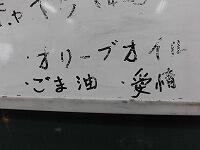 ・オリーブオイル
・ごま油 ・愛情